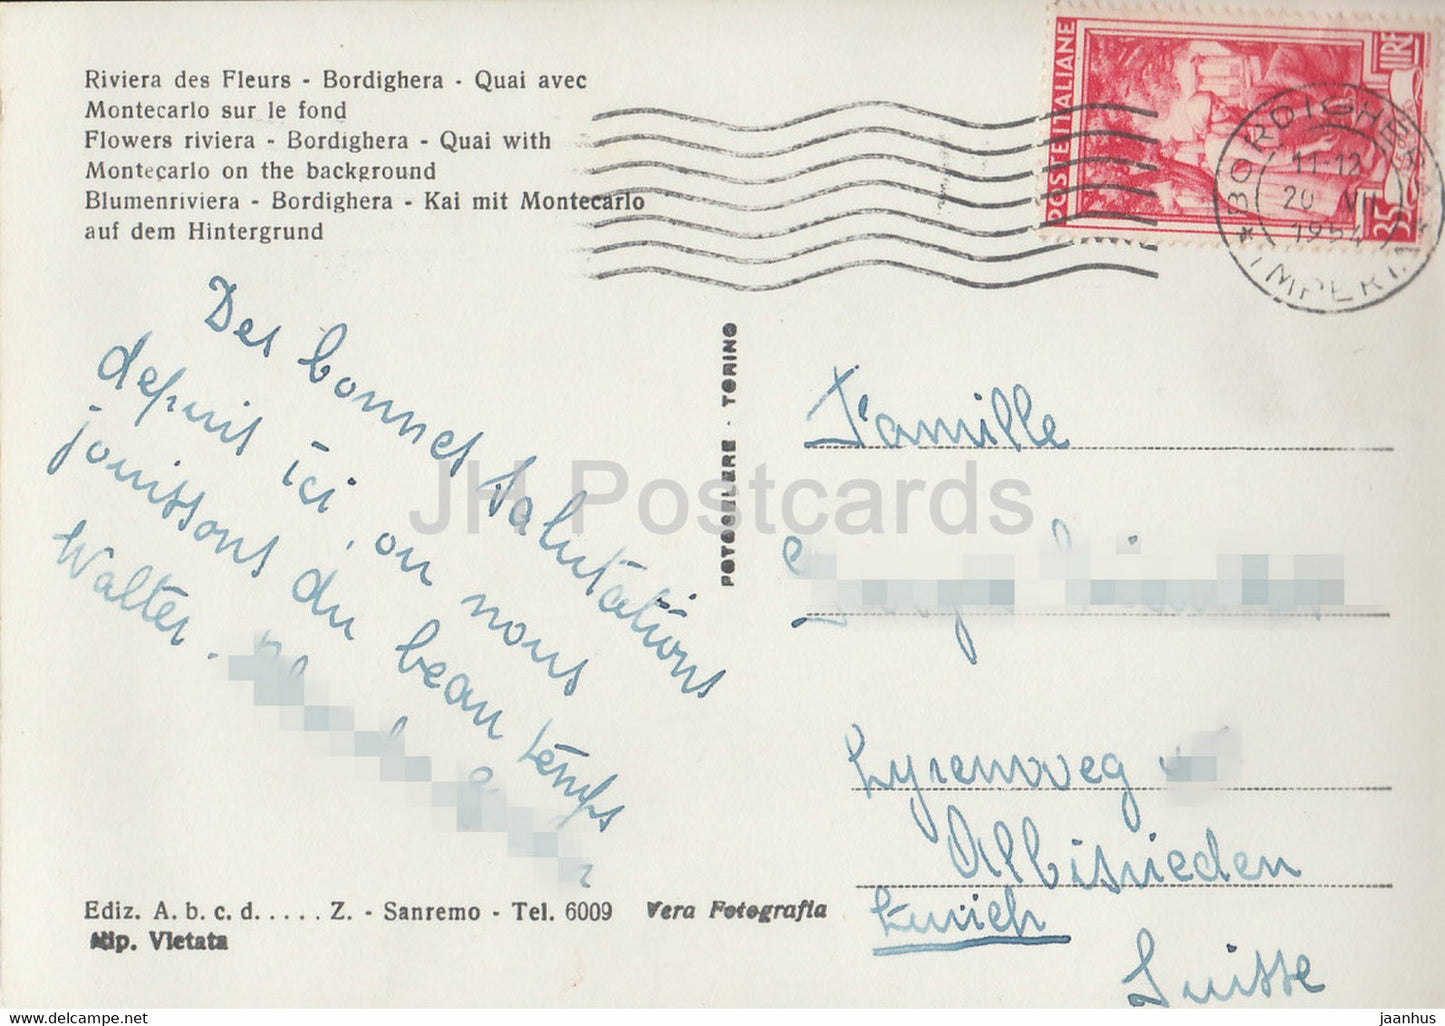 Riviera des Fleurs - Bordighera - Quai avec
Montecarlo sur le fond
Flowers riviera - Bordighera - Quai with
Montecarlo on the background
Blumenriviera - Bordighera - Kai mit Montecarlo
auf dem Hintergrund
POSTE ITALIANE
LIRE
35
BORDIGHERA
11-12
20 VII
1954
* IMPERIA
Des bonnes Salutations
depuis ici, ou nous
jouissons du beau temps
Walter.
FOTOCELERE - TORINO
JH Postcards
Famille
Albisrieden
Zurich
Suisse
Ediz. A. b. c. d. . . . . Z. - Sanremo - Tel. 6009
Vera Fotografia
Rip. Vietata
www.delcampe.net
jaanhus